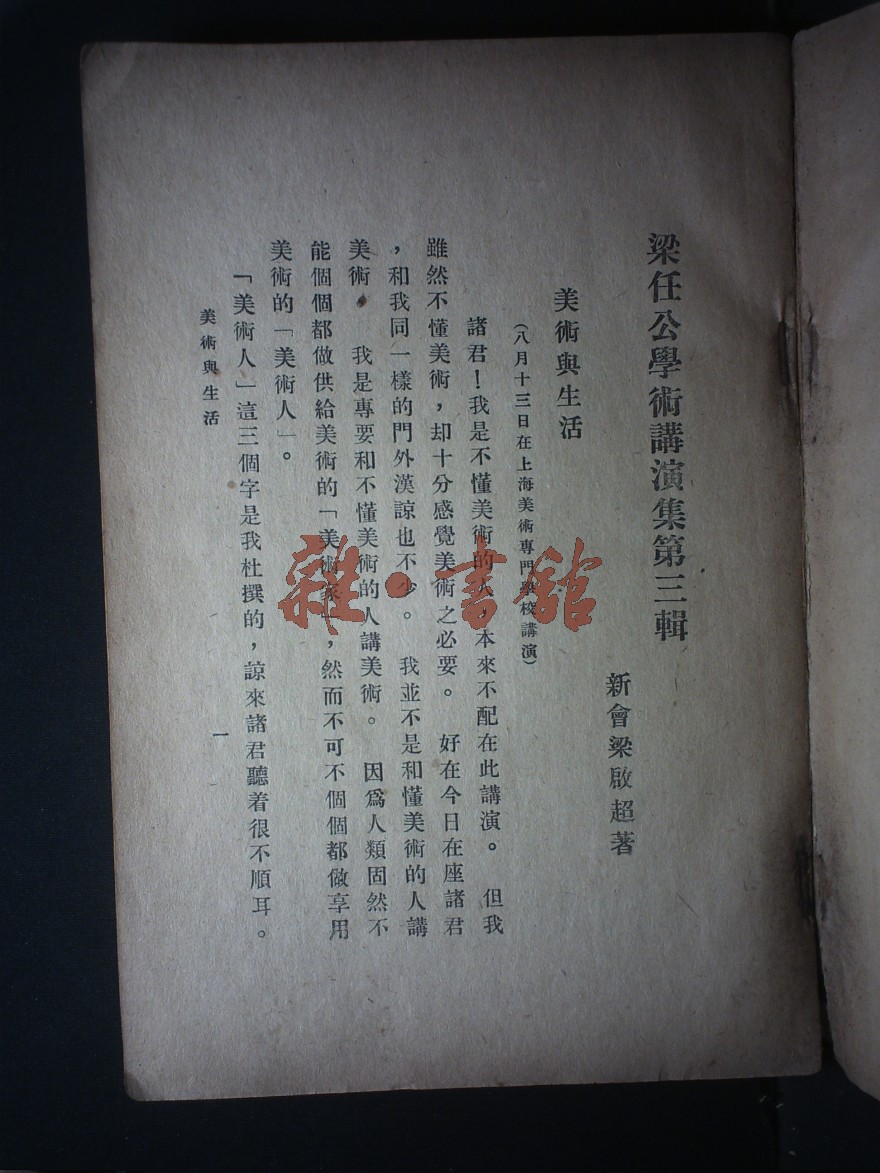 梁任公學術講演集第三輯
新會梁啟超著
美術與生活
(八月十三日在上海美術專門學校講演)
諸君!我是不懂美術的人,本來不配在此講演。但我
雖然不懂美術,却十分感覺美術之必要。好在今日在座諸君
,和我同一樣的門外漢諒也不少。我並不是和懂美術的人講
美術,我是專要和不懂美術的人講美術。因爲人類固然不
能個個都做供給美術的「美術家」,然而不可不個個都做享用
美術的「美術人」。
「美術人」這三個字是我杜撰的,諒來諸君聽着很不順耳。
美術與生活
一
雜·書館